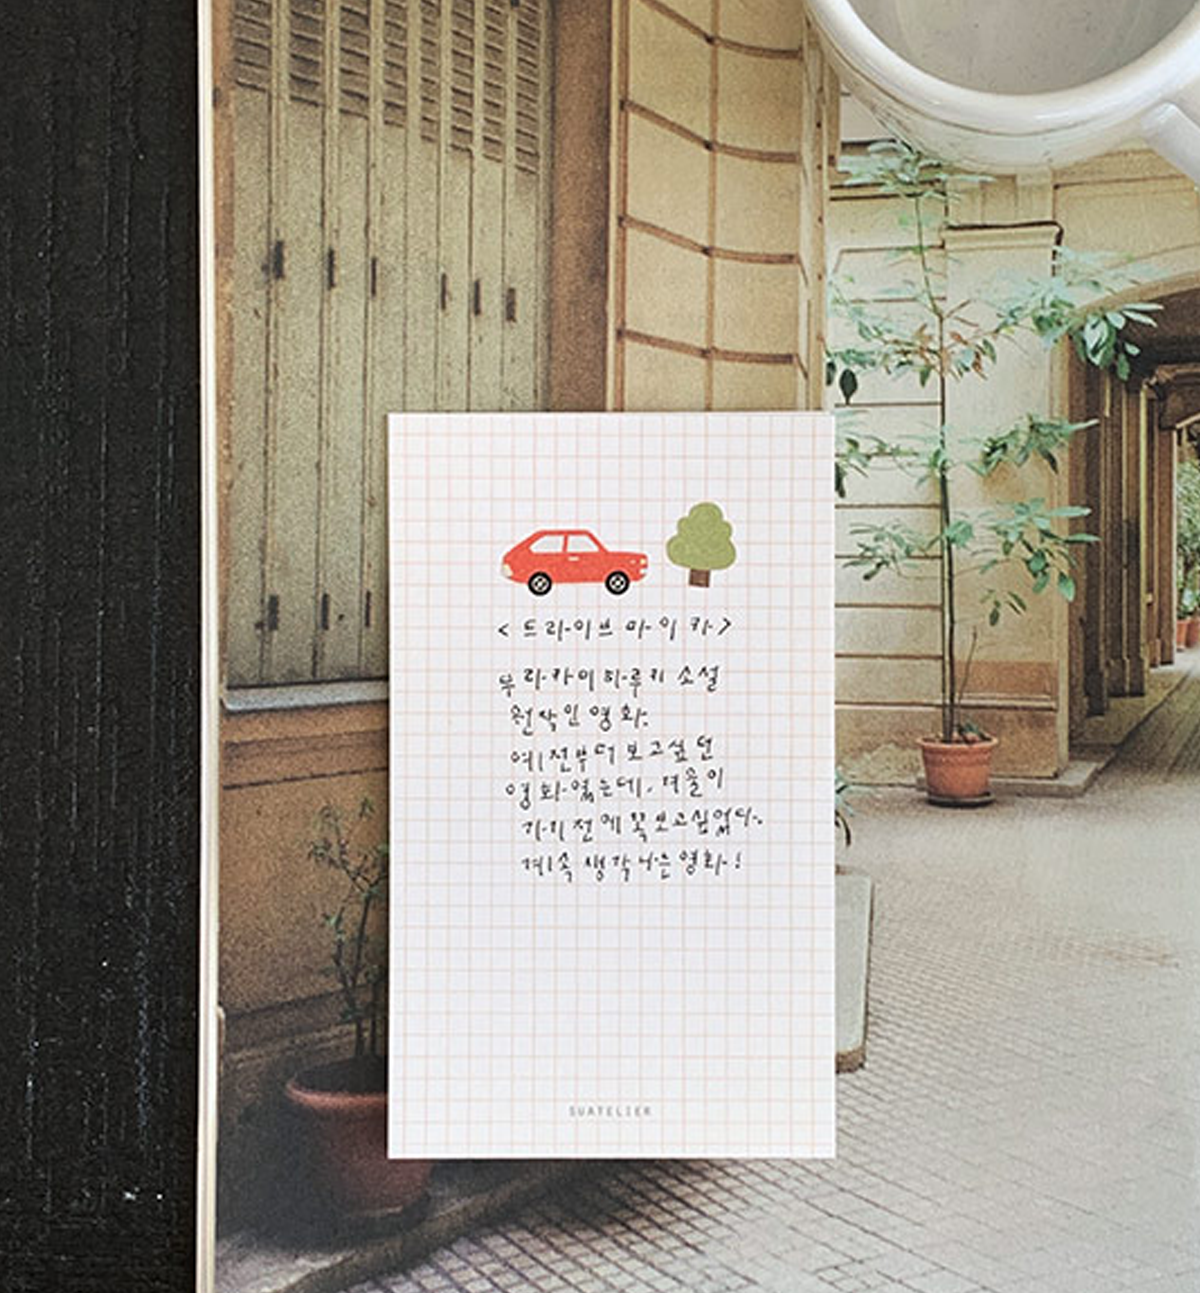 <드라이브 마이 카>
무라카미 하루키 소설
원작인 영화.
예전부터 보고싶던
영화였는데, 겨울이
가기 전에 꼭 보고싶었다.
계속 생각나는 영화!
SUATELIER